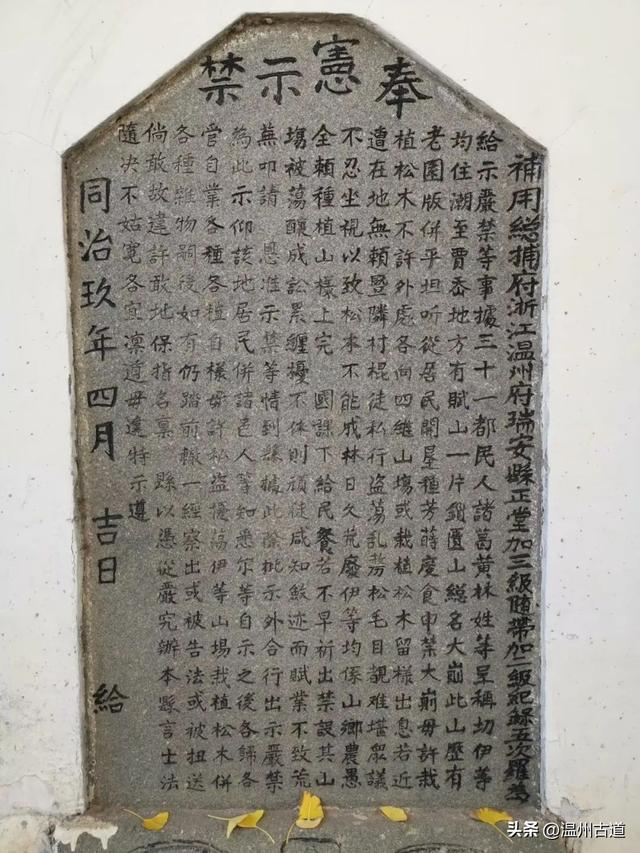 奉憲示禁
補用總捕府浙江温州府瑞安縣正堂加三級隨帶加二級紀錄五次羅為
給示嚴禁等事據三十一都民人諸葛黄林姓等呈稱切伊等
均住湖至賈岙地方有賦山一片鎖匱山總名大崩此山歷有
老園版併平坦听從居民開垦種芳蒔慶食申禁大崩毋許栽
植松木不許外處各向四維山塲或栽植松木留樣出息若近
遭在地無賴暨隣村棍徒私行盗蕩乱蒡松毛目覩难堪眾議
不忍坐視以致松木不能成林日久荒廢伊等均係山鄉農愚
全賴種植山樣上完 國課下給民餐若不早祈出禁設其山
塲被蕩釀成訟累纏擾不休則頑徒咸知斂迹而賦業不致荒
蕪叩請 恩准示禁等情到縣據此除批示外合行出示嚴禁
為此示仰該地居民併諸邑人等知悉尔等自示之後各歸各
管自業各種各植自樣毋許私盗擾蕩伊等山塲栽植松木併
各種雜物嗣後如有仍踏前轍一經察出或被告法或被扭送
倘敢故違許敢地保指名禀 縣以憑從嚴究辦本縣言士法
隨决不姑寛各宜凛遵毋違特示遵
同治玖年四月 吉日 給
头条 @温州古道